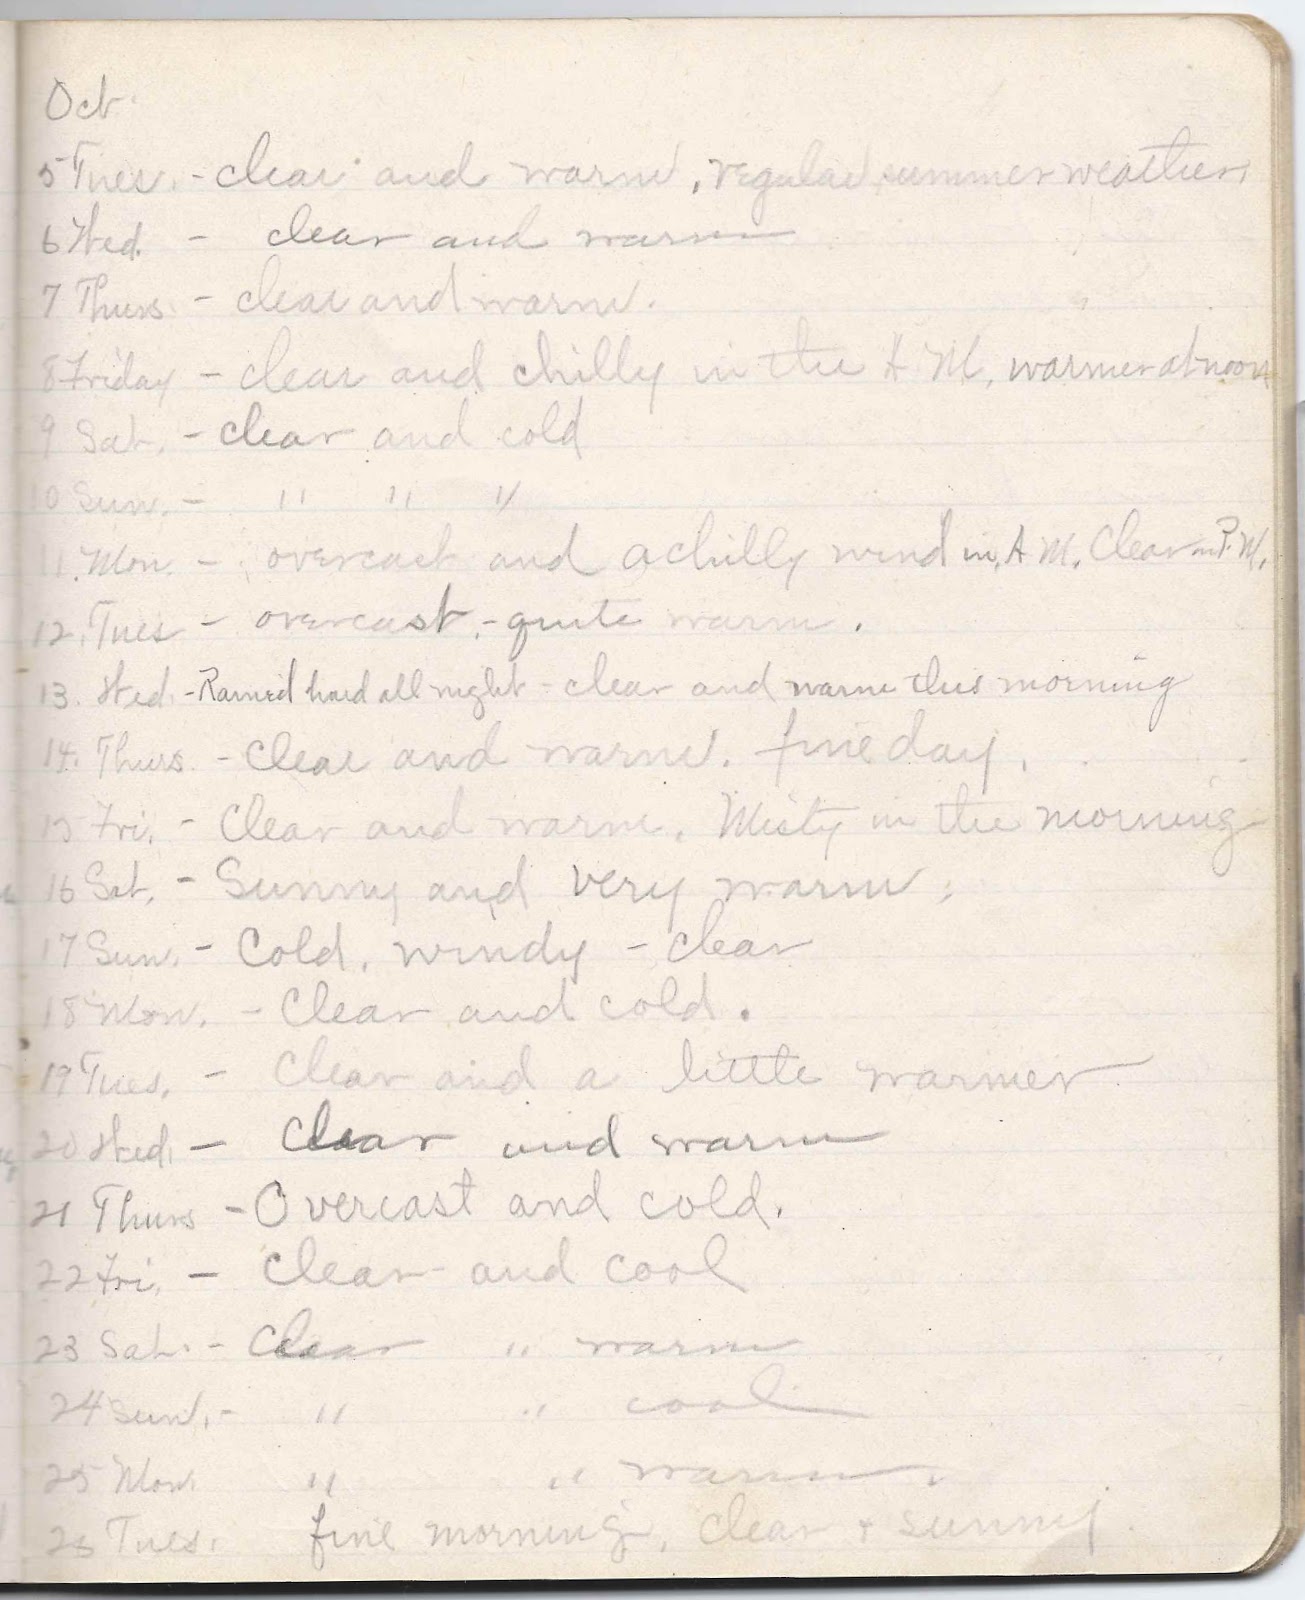 Oct.
5 Tues. - clear and warm, regular summer weather,
6 Wed. - clear and warm
7 Thurs. - clear and warm.
8 Friday - clear and chilly in the A.M, warmer at noon
9 Sat. - clear and cold
10 Sun. - " " "
11. Mon. - overcast and a chilly wind in, A.M. Clear in P.M.
12. Tues - overcast, - quite warm.
13. Wed. - Rained hard all night - clear and warm this morning
14. Thurs. - clear and warm. fine day.
15 Fri. - Clear and warm. Misty in the morning
16 Sat. - Sunny and very warm.
17 Sun. - Cold, windy - clear
18 Mon. - Clear and cold.
19 Tues. - Clear and a little warmer
20 Wed. - Clear and warm
21 Thurs - Overcast and cold.
22 Fri. - Clear and cool
23 Sat. - Clear " warm
24 Sun. - " " cool
25 Mon. " " warm.
26 Tues. fine morning, clear + sunny